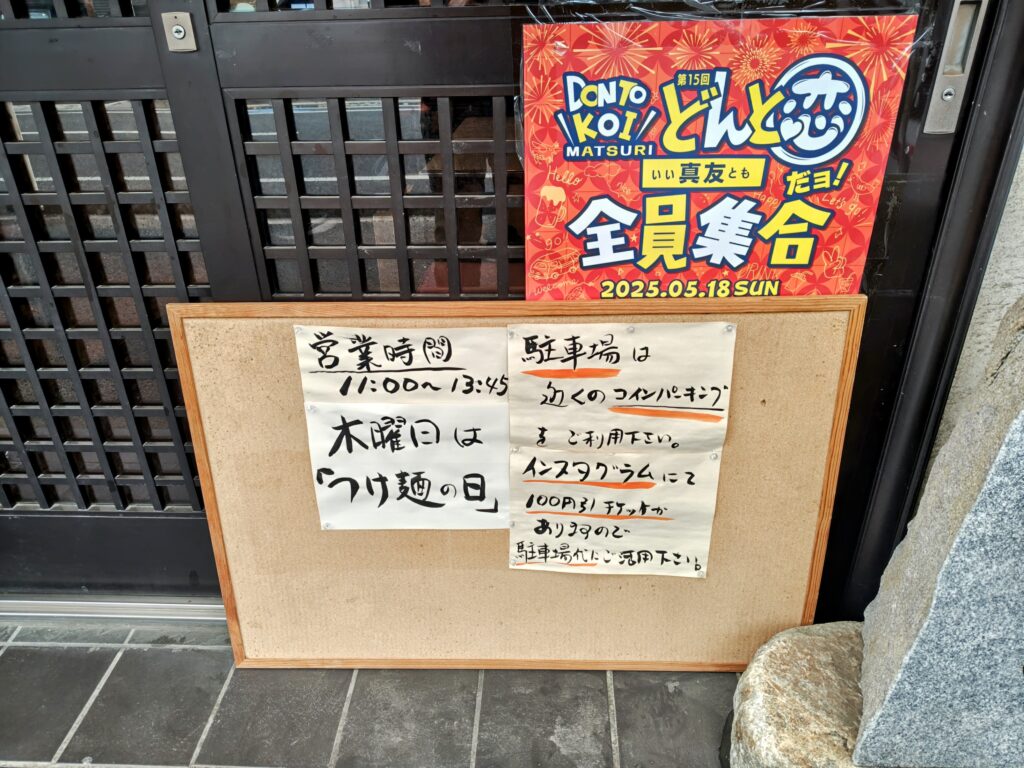 DONTO
KOI
MATSURI
第15回
どんと恋
いい真友とも
だョ!
全員集合
2025.05.18 SUN
営業時間
11:00〜13:45
木曜日は
「つけ麺の日」
駐車場は
近くのコインパーキング
をご利用下さい。
インスタグラムにて
100円引チケットが
ありますので
駐車場代にご活用下さい。